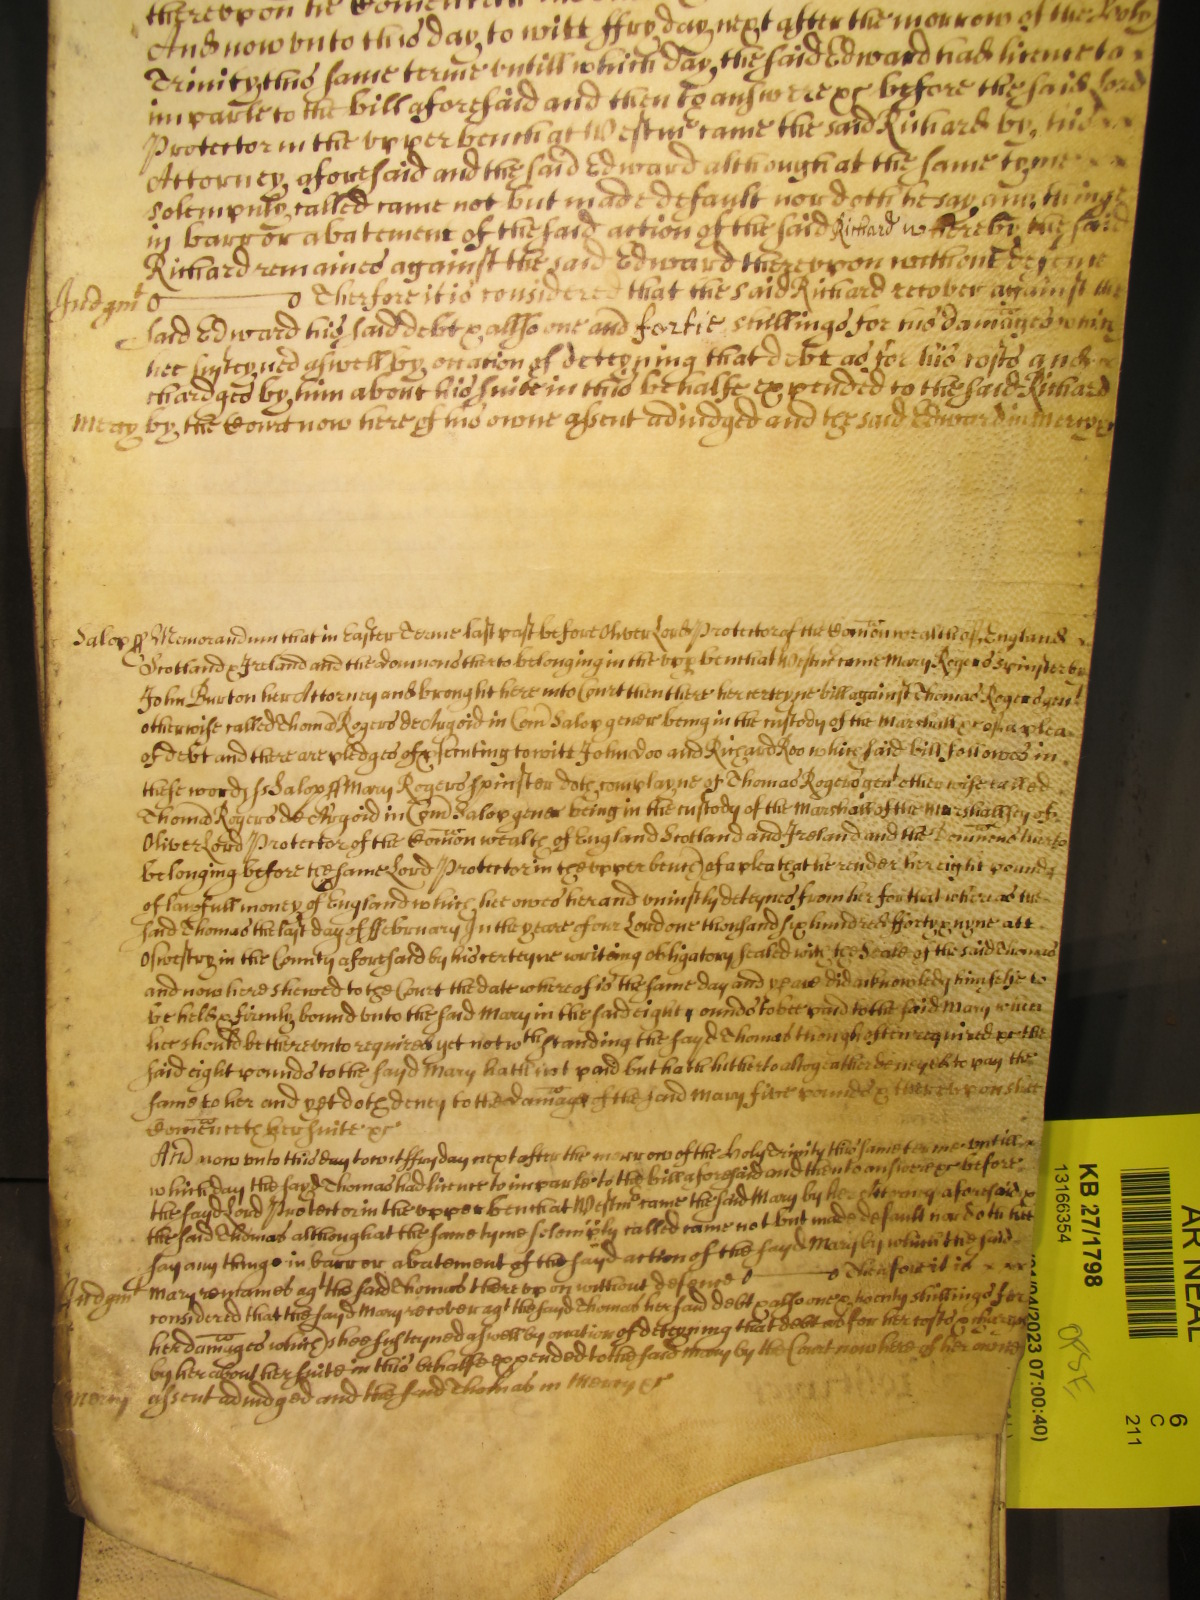 thereupon he Comenceth
And now unto this day, to witt ffryday, next after the morrow of the Holy
Trinity this same terme untill which day, the said Edward had licence to
imparle to the bill aforesaid and then to answere &c before the said Lord
Protector in the upper bench at Westmr came the said Richard by, his
Attorney, aforesaid and the said Edward although at the same tyme
solempnly, called came not but made default nor doth he say, any, thinge
in barr or abatement of the said action of the said Richard whereby, the said
Richard remaines against the said Edward thereupon without defence
Judgmt Therfore it is considered that the said Richard recover against the
said Edward his said debt & allso one and fortie shillings for his damages which
hee susteyned aswell by, occation of deteyning that debt as for his costs and
chardges by, him about his suite in this behalfe expended to the said Richard
Mercy by, the Court now here of his owne assent adiudged and the said Edward in Mercy &c
Salop ss Memorandum that in Easter Terme last past before Oliver Lord Protector of the Comonwealth of England
Scotland & Ireland and the domnons therto belonging in the upp bench at Westmr came Mary Rogers spinster by
John Burton her Attorney and brought here into Court then there her certeyne bill against Thomas Rogers gent
otherwise called Thomas Rogers de Argoid in Com Salop gener being in the custody of the Marshall &c of a plea
of debt and there are pledges of prsecuting to witt John Doo and Richard Roo which said bill followes in
these words ss Salop ss Mary Rogers spinster doth complayne of Thomas Rogers gent otherwise called
Thomas Rogers de Argoid in Com Salop gener being in the custody of the Marshall of the Marshallsey of
Oliver Lord Protector of the Comon wealth of England Scotland and Ireland and the Domnons therto
belonging before the same Lord Protector in the upper bench of a plea that he render her eight pounds
of lawfull money of England which hee owes her and uniustly deteynes from her for that wheras the
said Thomas the last day of ffebruary In the yeare of our Lord one thousand six hundred ffortty & nyne att
Oswestry in the County aforesaid by his certeyne writeing obligatory sealed with the Seale of the said Thomas
and now here shewed to the Court the date whereof is the same day and yeare did acknowledg himselfe to
be held & firmly bound unto the said Mary in the said eight pounds to bee paid to the said Mary when
hee should be thereunto required yet notwthstanding the sayd Thomas though often required &c the
said eight pounds to the sayd Mary hath not paid but hath hitherto altogeather denyed to pay the
same to her and yet doth deney to the damage of the said Mary five pounds & thereupon shee
Comenceth her suite &c
And now unto this day to witt ffryday next after the morrow of the Holy Trinity this same terme untill
which day the sayd Thomas had licence to imparle to the bill aforesaid and then to answere &c before
the sayd Lord Protector in the upper bench at Westmr came the said Mary by her Attorney aforesaid &
the said Thomas although at the same tyme solemply called came not but made default nor doth hee
say any thinge in barr or abatement of the sayd action of the sayd Mary by which the said
Mary remaines agt the said Thomas thereupon without defence Therfore it is
Judgmt considered that the sayd Mary recover agt the sayd Thomas her said debt & allso one & twenty shillings for
her damages which shee susteyned aswell by occation of deteyning that debt as for her costs & charges
by her about her suite in this behalfe expended to the said Mary by the Court now here of her owne
Mercy assent adiudged and the said Thomas in Mercy &c
AR NEAL
KB 27/1798
13166354
2023 07:00:40)
6
C
211